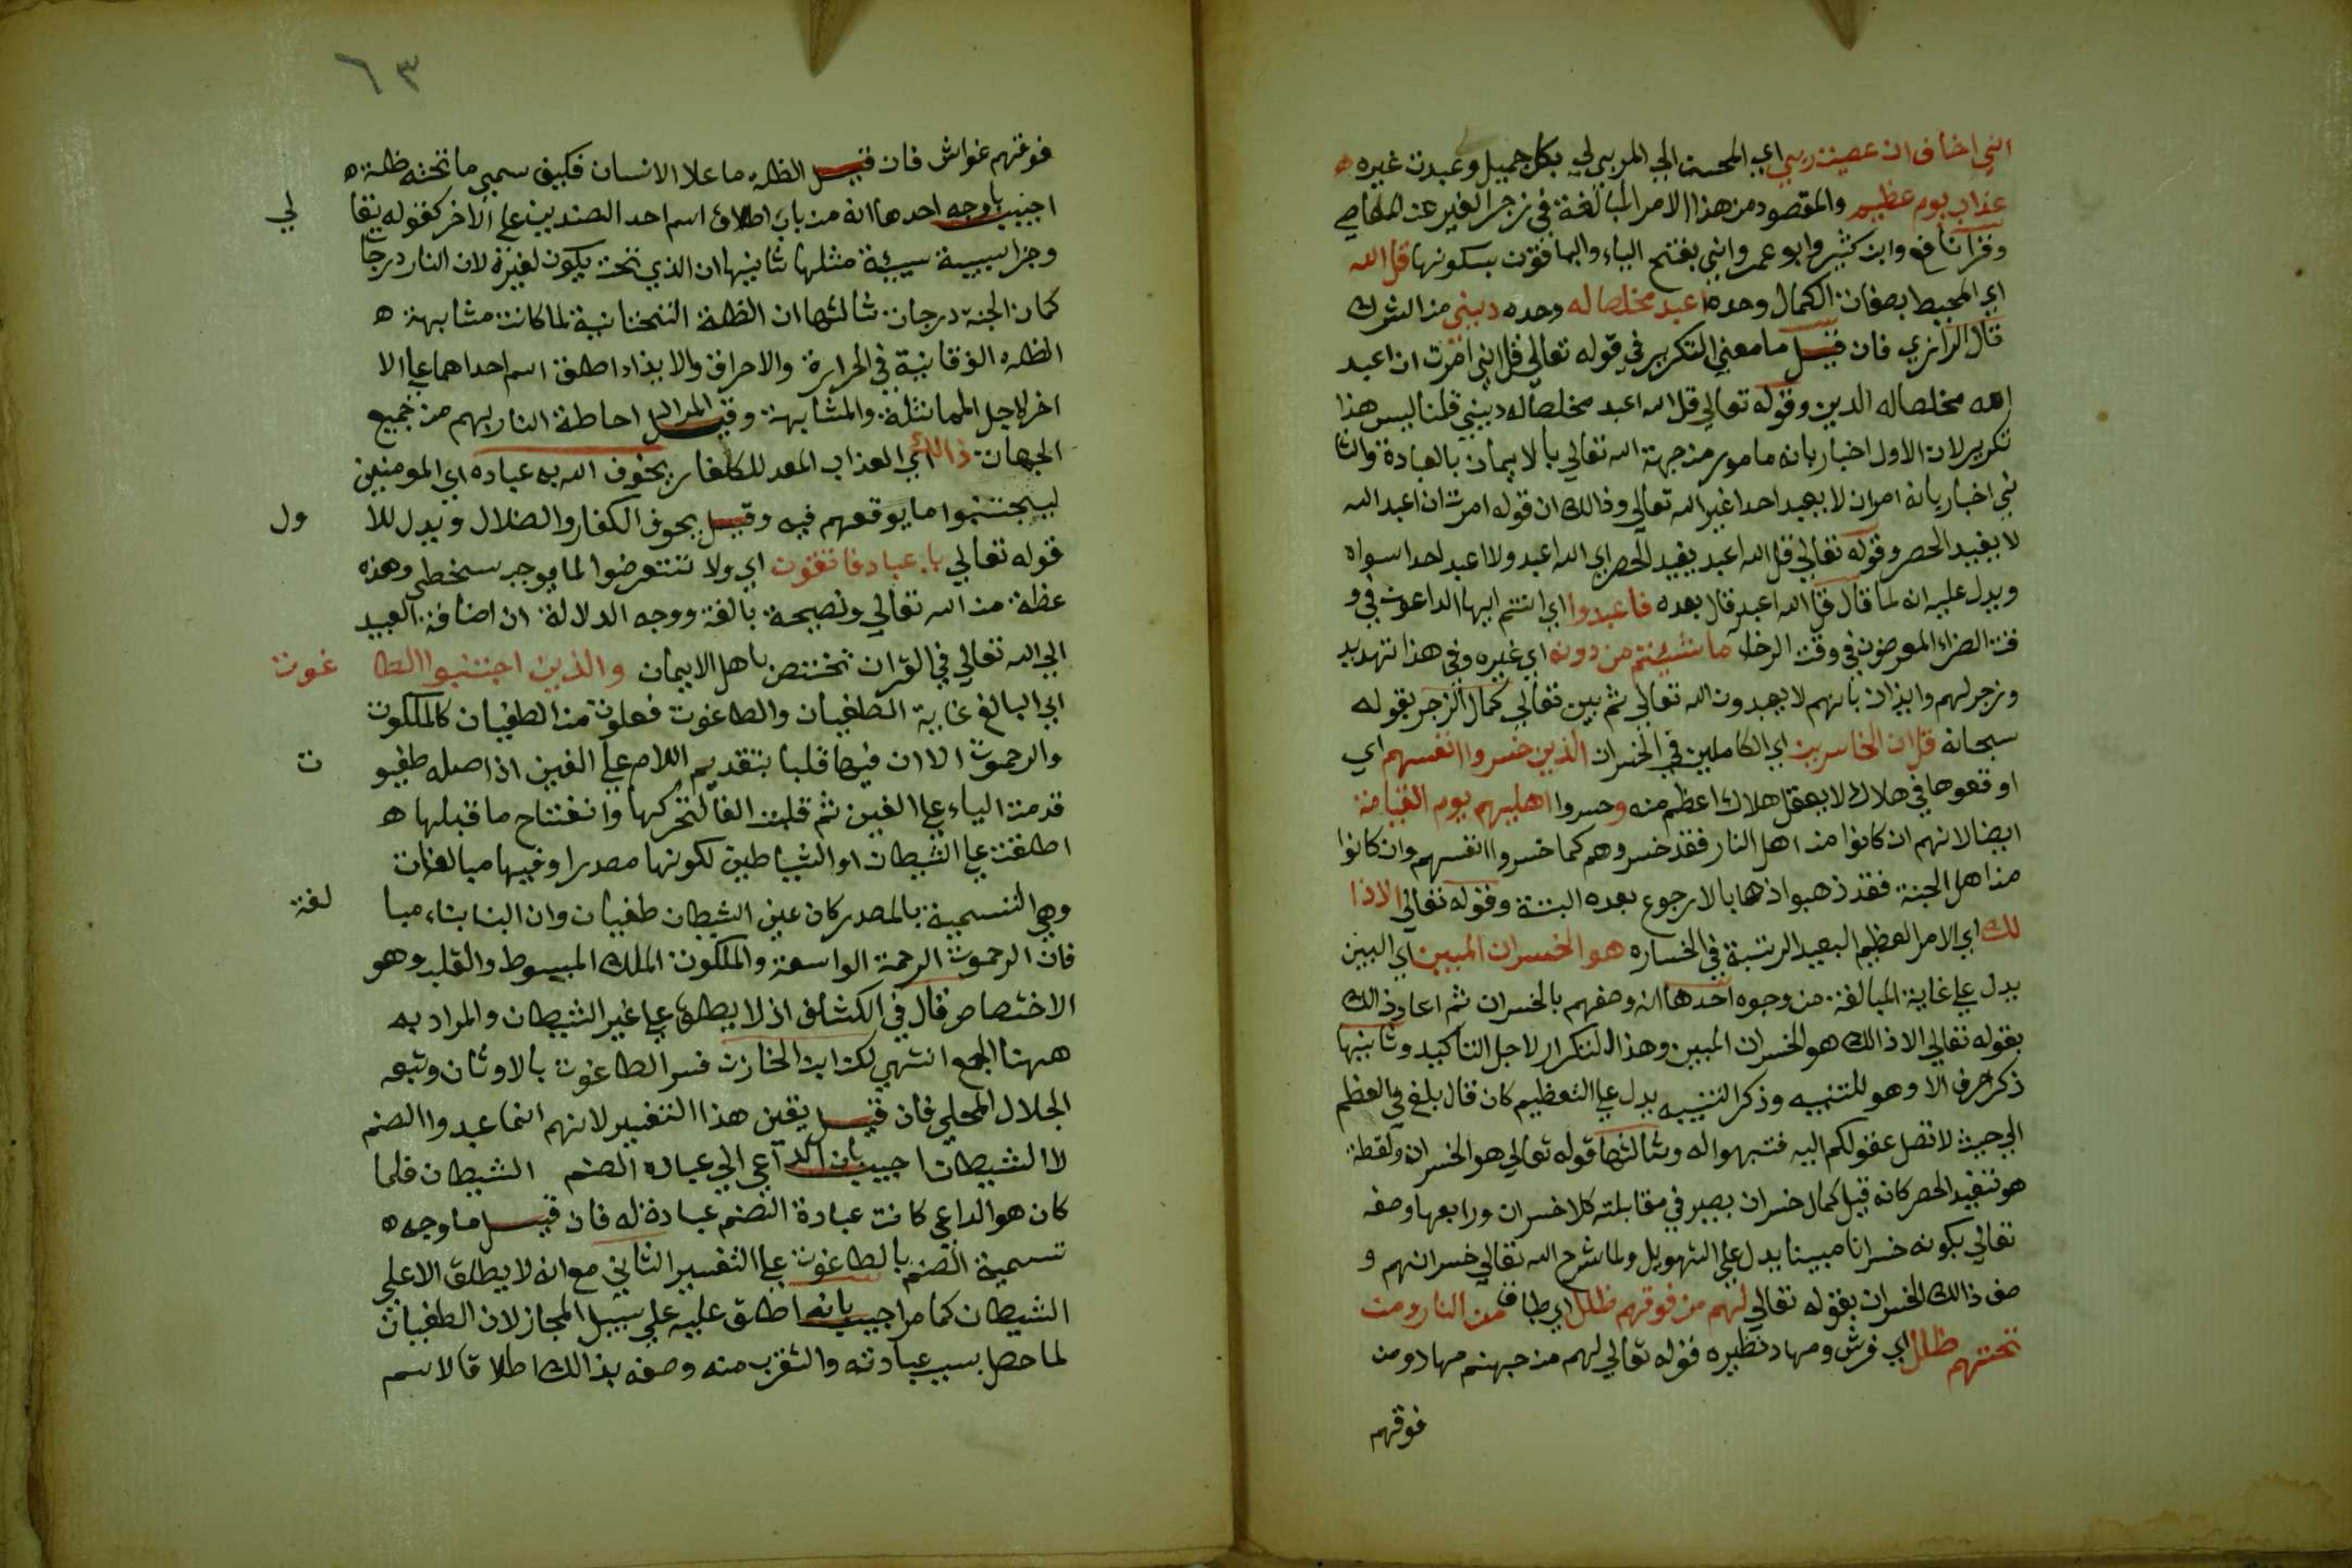 اني اخاف ان عصيت ربي اي المحسن الي المربي لي بكل جميل وعبدت غيره ه
عذاب يوم عظيم والمقصود من هذا الامر المبالغة في زجر الغير عن المعاصي
وقرا نافع وابن كثير وابو عمرو اني بفتح الياء والباقون بسكونها قل الله
اي المحيط بصفات الكمال وحده اعبد مخلصا له وحده ديني من الشرك
قال الرازي فان قيل ما معني التكرير في قوله تعالي قل اني امرت ان اعبد
الله مخلصا له الدين وقوله تعالي قل الله اعبد مخلصا له ديني قلنا ليس هذا
تكرير لان الاول اخبار بانه مامور من جهة الله تعالي بالايمان بالعبادة والثا
ني اخبار بانه امر ان لا يعبد احدا غير الله تعالي وذالك ان قوله امرت ان اعبد الله
لا يفيد الحصر وقوله تعالي قل الله اعبد يفيد الحصر اي الله اعبد ولا اعبد احدا سواه
ويدل عليه انه لما قال قل الله اعبد قال بعده فاعبدوا اي انتم ايها الداعون في و
قت الضراء المعرضون في وقت الرخاء ما شيئتم من دونه اي غيره وفي هذا تهديد
وزجر لهم وايذان بانهم لا يعبدون الله تعالي ثم بين تعالي كمال الزجر بقوله
سبحانه قل ان الخاسرين اي الكاملين في الخسران الذين خسروا انفسهم اي
اوقعوها في هلاك لا يعقل هلاك اعظم منه وخسروا اهليهم يوم القيامة
ايضا لانهم ان كانوا من اهل النار فقد خسروهم كما خسروا انفسهم وان كانوا
من اهل الجنة فقد ذهبوا ذهابا لا رجوع بعده البتة وقوله تعالي الا ذا
لك اي الامر العظيم البعيد الرتبة في الخساره هو الخسران المبين اي البين
يدل علي غاية المبالغة من وجوه احدها انه وصفهم بالخسران ثم اعاد ذالك
بقوله تعالي الا ذالك هو الخسران المبين وهذا التكرار لاجل التاكيد وثانيها
ذكر حرف الا وهو للتنبيه وذكر التنبيه يدل علي التعظيم كان قال بلغ في العظم
الي حيث لا تصل عقولكم اليه فتبهوا له وثالثها قوله تعالي هو الخسران ولفظة
هو تفيد الحصر كانه قيل كمال خسران يصير في مقابلته كلا خسران ورابعها وصفه
تعالي بكونه خسرانا مبينا يدل علي التهويل ولما شرح الله تعالي خسرانهم و
صف ذالك الخسران بقوله تعالي لهم من فوقهم ظلل اي طباق من النار ومن
تحتهم ظلل اي فرش ومهاد نظيره قوله تعالي لهم من جهنم مهاد ومن
فوقهم
٦٣
فوقهم غواش فان قيل الظله ما علا الانسان فكيف سمي ما تحته ظلة ه
اجيب باوجه احدها انه من باب اطلاق اسم احد الضديين علي الاخر كقوله تعا لي
وجزا سيية سيئة مثلها ثانيها ان الذي تحت يكون لغيره لان النار درجات
كما ان الجنة درجات ثالثها ان الظلة التحتانية لما كانت مشابهة ه
الظله الفوقانية في الحرارة والاحراق والايذاء اطلق اسم احداهما علي الا
خر لاجل المماثلة والمشابهة وقيل المراد احاطة النار بهم من جميع
الجهات ذالك اي العذاب المعد للكفار يخوف الله به عباده اي المومنين
ليجتنبوا ما يوقعهم فيه وقيل يخوف الكفار والضلال ويدل للا ول
قوله تعالي يا عباد فاتقون اي ولا تتعرضوا لما يوجب سخطي وهذه
عظة من الله تعالي ونصيحة بالغة ووجه الدلالة ان اضافة العبيد
الي الله تعالي في القران تختص باهل الايمان والذين اجتنبوا الطا غوت
اي البالغ غاية الطغيان والطاغوت فعلوت من الطغيان كالملكوت
والرحموت الا ان فيها قلبا بتقديم اللام علي الغين اذ اصله طغيو ت
قدمت الياء علي الغين ثم قلبت الفا لتحركها وانفتاح ما قبلها ه
اطلقت علي الشيطان او الشياطين لكونها مصدرا وفيها مبالغات
وهي التسمية بالمصدر كان عين الشيطان طغيان وان البنا بناء مبا لغة
فان الرحموت الرحمة الواسعة والملكوت الملك المبسوط والقلب وهو
الاختصاص قال في الكشاف اذ لا يطلق علي غير الشيطان والمراد به
ههنا الجمع انتهي لكن ابن الخازن فسر الطاغوت بالاوثان وتبعه
الجلال المحلي فان قيل يقين هذا التفيير لانهم انما عبدوا الصنم
لا الشيطان اجيب بان الداعي الي عبادة الصنم الشيطان فلما
كان هو الداعي كانت عبادة الصنم عبادة له فان قيل ما وجه ه
تسمية الصنم بالطاغوت علي التفسير الثاني مع انه لا يطلق الا علي
الشيطان كما مر اجيب بانه اطلق عليه علي سبيل المجاز لان الطغيان
لما حصل بسبب عبادته والتقرب منه وصفه بذالك اطلاقا لاسم